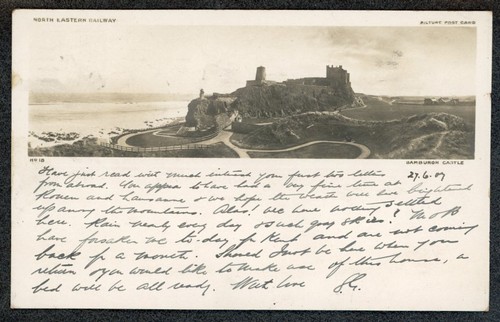 NORTH EASTERN RAILWAY
PICTURE POST CARD
Nº 18
BAMBURGH CASTLE
27.6.07
Have just read with much interest your first two letters
from abroad. You appear to have had a very fine time at
Rouen and Lausanne & we hope the weather will have brightened
up among the mountains. Alas! we have nothing settled
here. Rain nearly every day & such grey skies! M & B
have forsaken me to-day for Kent and are not coming
back for a month. Should I not be here when you
return & you would like to make use of this house, a
bed will be all ready. With love